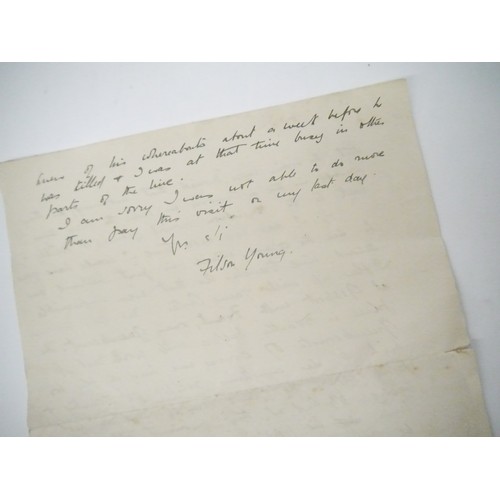 knew of his whereabouts about a week before he
was killed & I was at that time busy in other
parts of the line.
I am sorry I was not able to do more
than pay this visit on my last day.
Yrs
Filson Young.